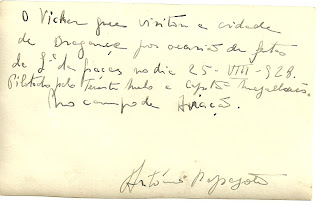 O Vicker que visitou a cidade
de Bragança por ocasião da festa
da Sª das Graças no dia 25-VIII-928.
Pilotado pelo Tenente Melo e Capitão Magalhães.
No campo de Aviação.
António